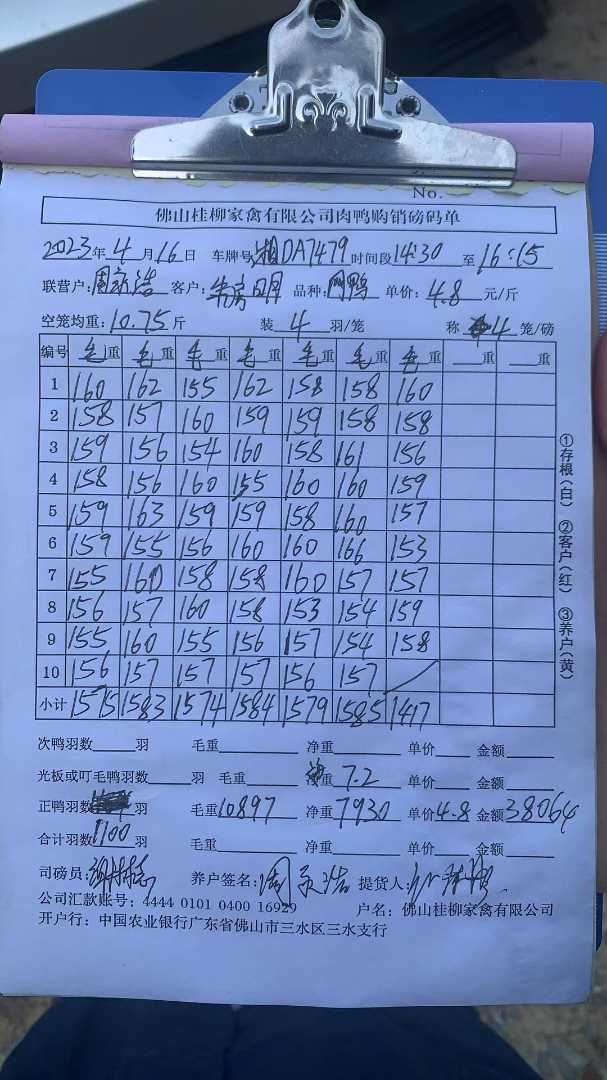 No.
佛山桂柳家禽有限公司肉鸭购销磅码单
2023年4月16日 车牌号湘DA7479 时间段14:30至16:15
联营户: 客户: 明 品种: 鸭 单价:4.8元/斤
空笼均重:10.75斤 装4羽/笼 称4笼/磅
编号 毛重 毛重 毛重 毛重 毛重 毛重 毛重 重 重
1 160 162 155 162 158 158 160
2 158 157 160 159 159 158 158
3 159 156 154 160 158 161 156
4 158 156 160 155 160 160 159
5 159 163 159 159 158 160 157
6 159 155 156 160 160 166 153
7 155 160 158 158 160 157 157
8 156 157 160 158 153 154 159
9 155 160 155 156 157 154 158
10 156 157 157 157 156 157
小计 1575 1583 1574 1584 1579 1585 1417
①存根(白) ②客户(红) ③养户(黄)
次鸭羽数 羽 毛重 净重 单价 金额
光板或叮毛鸭羽数 羽 毛重 净重7.2 单价 金额
正鸭羽数 羽 毛重10897 净重7930 单价4.8 金额38064
合计羽数1100羽 毛重 净重 单价 金额
司磅员: 养户签名: 提货人:
公司汇款账号:4444 0101 0400 16929 户名:佛山桂柳家禽有限公司
开户行:中国农业银行广东省佛山市三水区三水支行